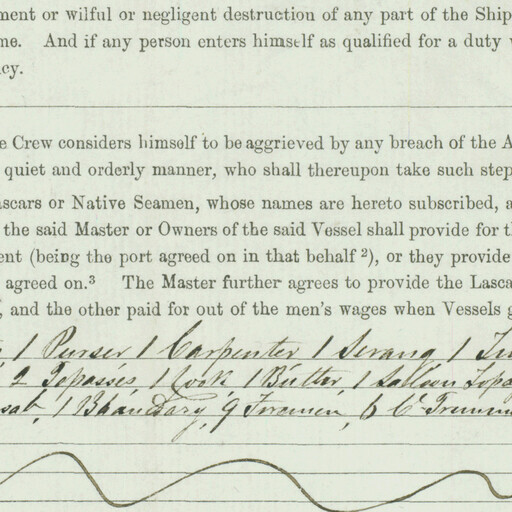 ment or wilful or negligent destruction of any part of the Ship
me. And if any person enters himself as qualified for a duty
cy.
e Crew considers himself to be aggrieved by any breach of the A
quiet and orderly manner, who shall thereupon take such step
ascars or Native Seamen, whose names are hereto subscribed, a
the said Master or Owners of the said Vessel shall provide for th
ent (being the port agreed on in that behalf ²), or they provide
agreed on.³ The Master further agrees to provide the Lasca
, and the other paid for out of the men's wages when Vessels g
1 Purser 1 Carpenter 1 Serang 1
2 Topasses, 1 Cook 1 Butler, 1 Saloon Topa
sab, 1 Bhandary, 9 Firemen, 6 Cl Trimm